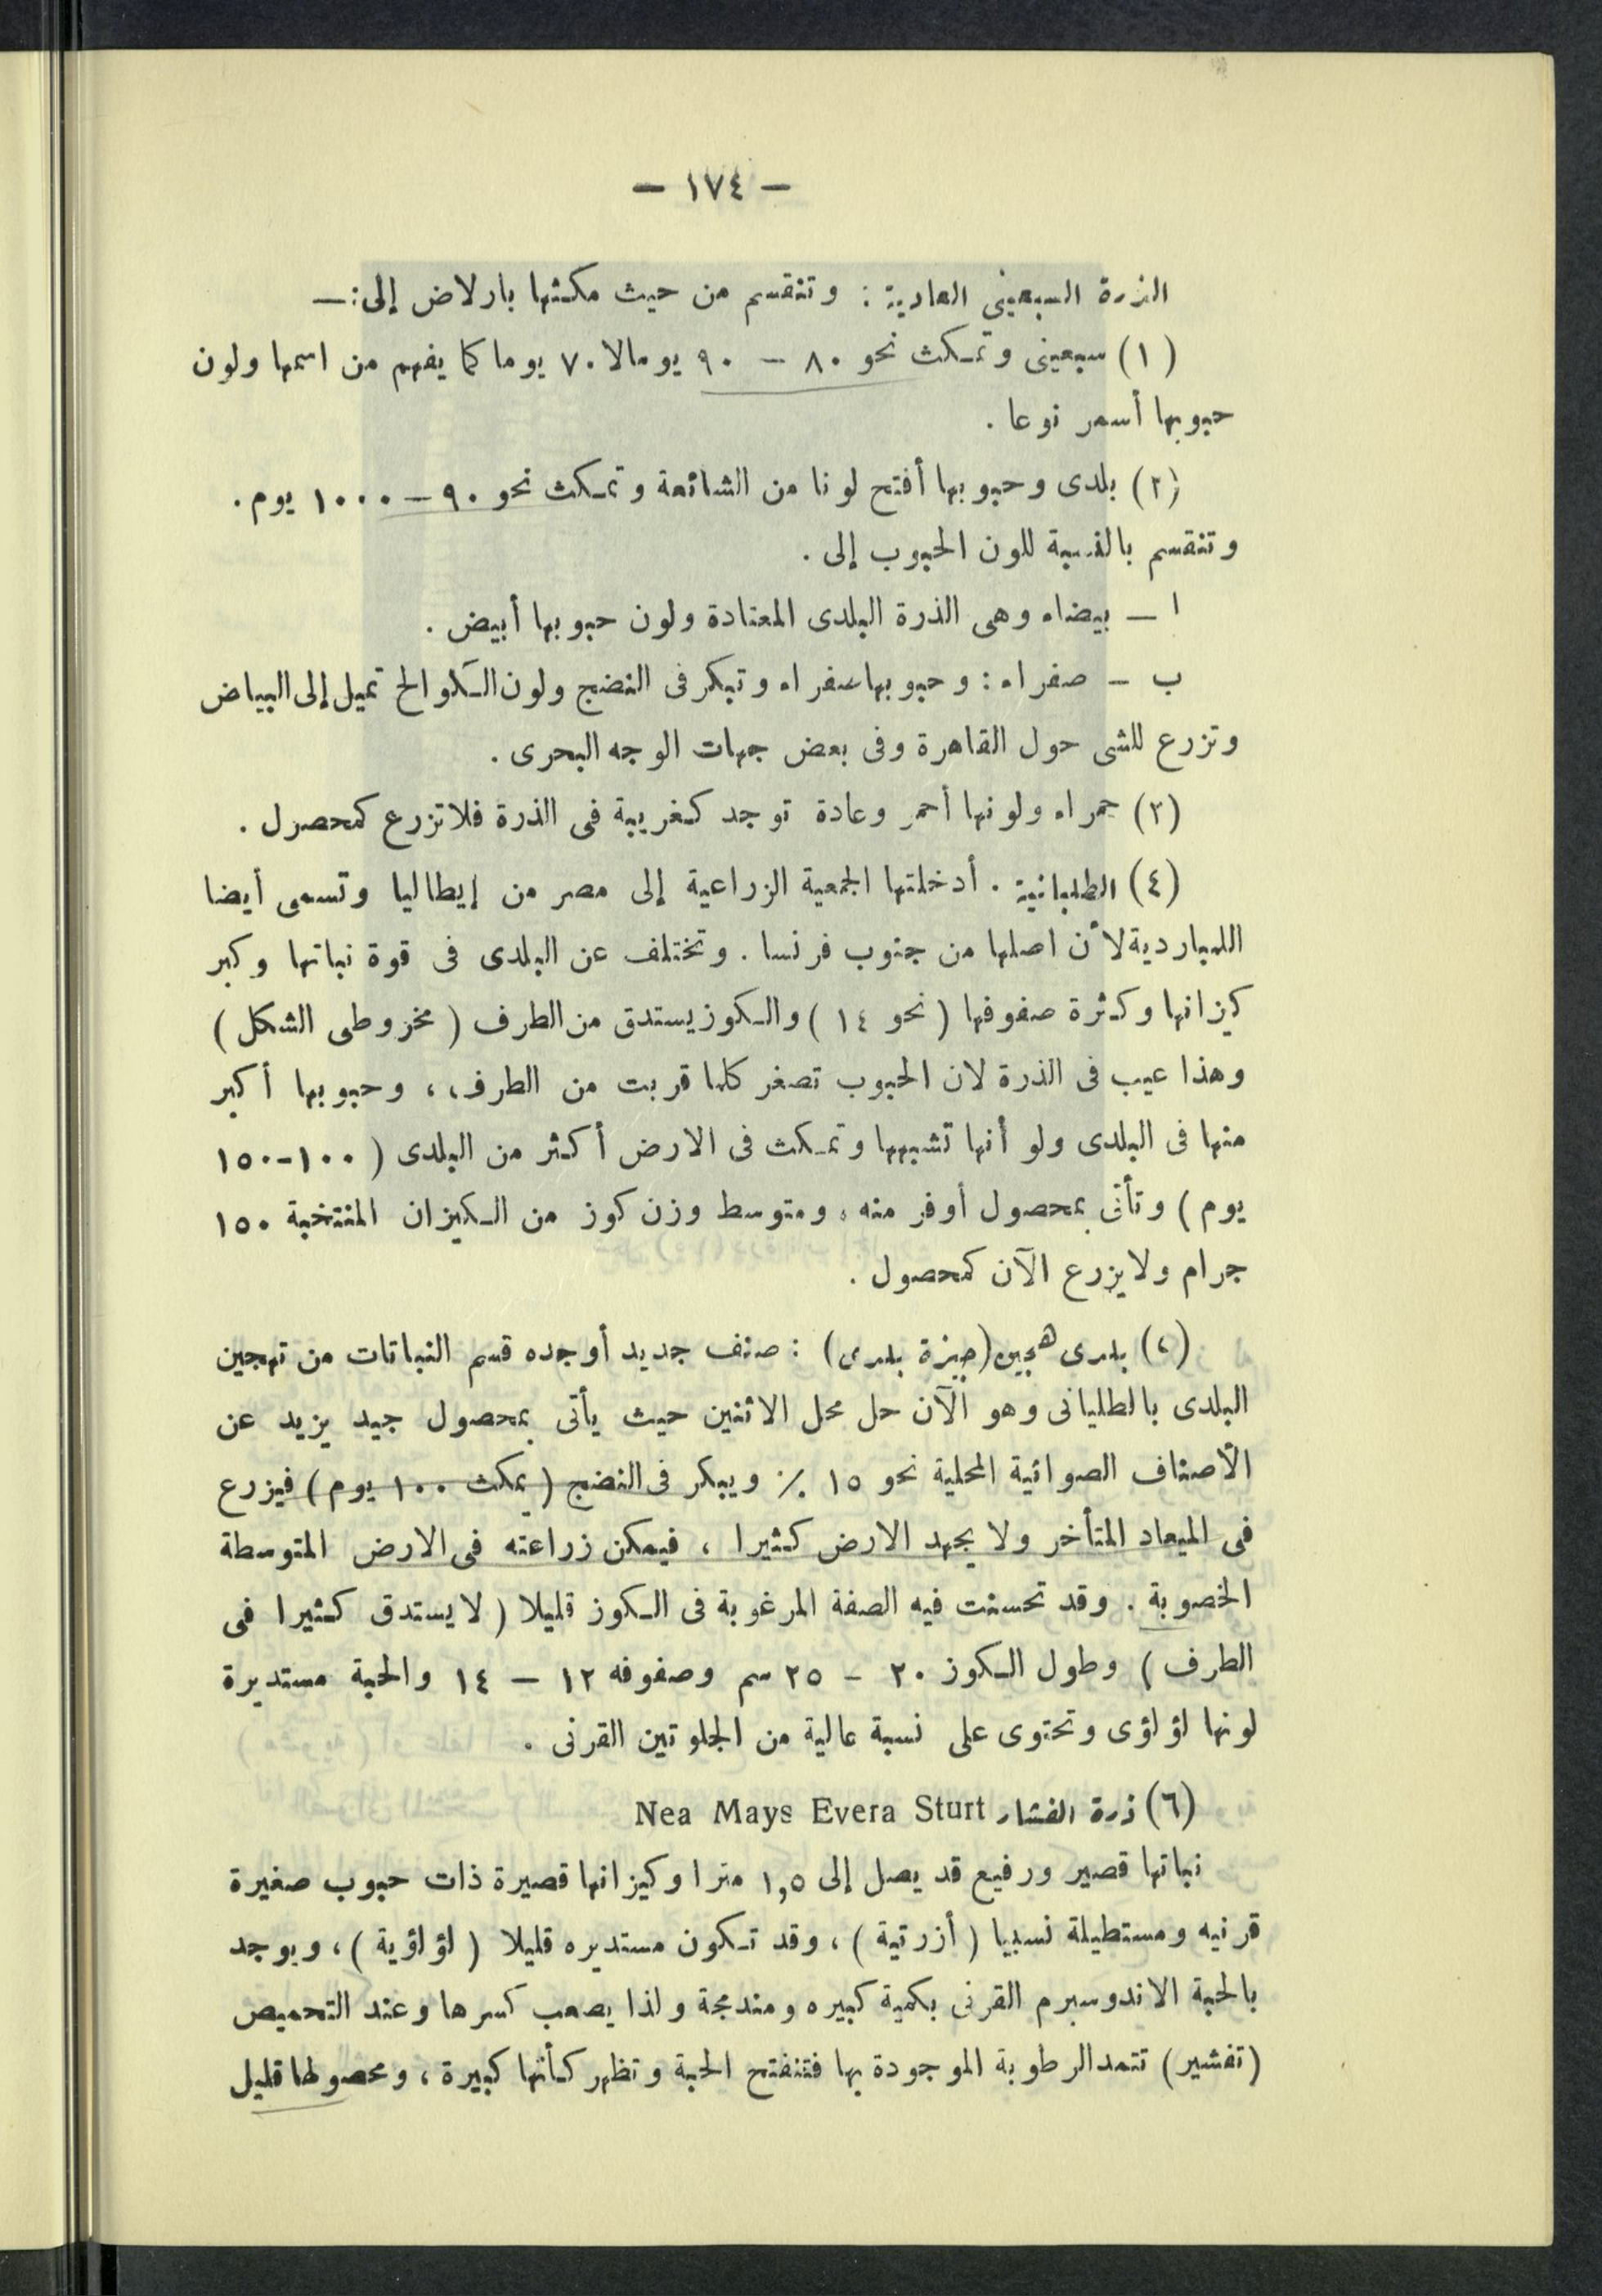 — ١٧٤ —
الذرة السبعينى العادية : وتنقسم من حيث مكثها بارلاض إلى :—
(١) سبعينى وتمكث نحو ٨٠ — ٩٠ يومالا ٧٠ يوما كما يفهم من اسمها ولون
حبوبها أسمر نوعا .
(٢) بلدى وحبوبها أفتح لونا من الشائعة وتمكث نحو ٩٠ — ١٠٠٠ يوم .
وتنقسم بالنسبة للون الحبوب إلى .
ا — بيضاء وهى الذرة البلدى المعتادة ولون حبوبها أبيض .
ب — صفراء : وحبوبها صفراء وتبكر فى النضج ولون الكوالح تميل إلى البياض
وتزرع للشى حول القاهرة وفى بعض جهات الوجه البحرى .
(٣) حمراء ولونها أحمر وعادة توجد كغريبة فى الذرة فلا تزرع كمحصول .
(٤) الطليانية . أدخلتها الجمعية الزراعية إلى مصر من إيطاليا وتسمى أيضا
اللمباردية لأن اصلها من جنوب فرنسا . وتختلف عن البلدى فى قوة نباتها وكبر
كيزانها وكثرة صفوفها ( نحو ١٤ ) والكوز يستدق من الطرف ( مخروطى الشكل )
وهذا عيب فى الذرة لان الحبوب تصغر كلما قربت من الطرف ، وحبوبها أكبر
منها فى البلدى ولو أنها تشبهها وتمكث فى الارض أكثر من البلدى ( ١٠٠-١٥٠
يوم ) وتأتى بمحصول أوفر منه ، ومتوسط وزن كوز من الكيزان المنتخبة ١٥٠
جرام ولا يزرع الآن كمحصول .
بلدى هجين (جيزة بلدى) : صنف جديد أوجده قسم النباتات من تهجين
البلدى بالطليانى وهو الآن حل محل الاثنين حيث يأتى بمحصول جيد يزيد عن
الأصناف الصوانية المحلية نحو ١٥ ٪ ويبكر فى النضج ( يمكث ١٠٠ يوم ) فيزرع
فى الميعاد المتأخر ولا يجهد الارض كثيرا ، فيمكن زراعته فى الارض المتوسطة
الخصوبة . وقد تحسنت فيه الصفة المرغوبة فى الكوز قليلا ( لا يستدق كثيرا فى
الطرف ) وطول الكوز ٢٠ — ٢٥ سم وصفوفه ١٢ — ١٤ والحبة مستديرة
لونها لؤلؤى وتحتوى على نسبة عالية من الجلوتين القرنى .
(٦) ذرة الفشار Nea Mays Evera Sturt
نباتها قصير ورفيع قد يصل إلى ١,٥ مترا وكيزانها قصيرة ذات حبوب صغيرة
قرنيه ومستطيلة نسبيا ( أزرتية ) ، وقد تكون مستديره قليلا ( لؤلؤية ) ، ويوجد
بالحبة الاندوسبرم القرنى بكمية كبيره ومندمجة ولذا يصعب كسرها وعند التحميص
(تفشير) تتمد الرطوبة الموجودة بها فتنفتح الحبة وتظهر كأنها كبيرة ، ومحصولها قليل